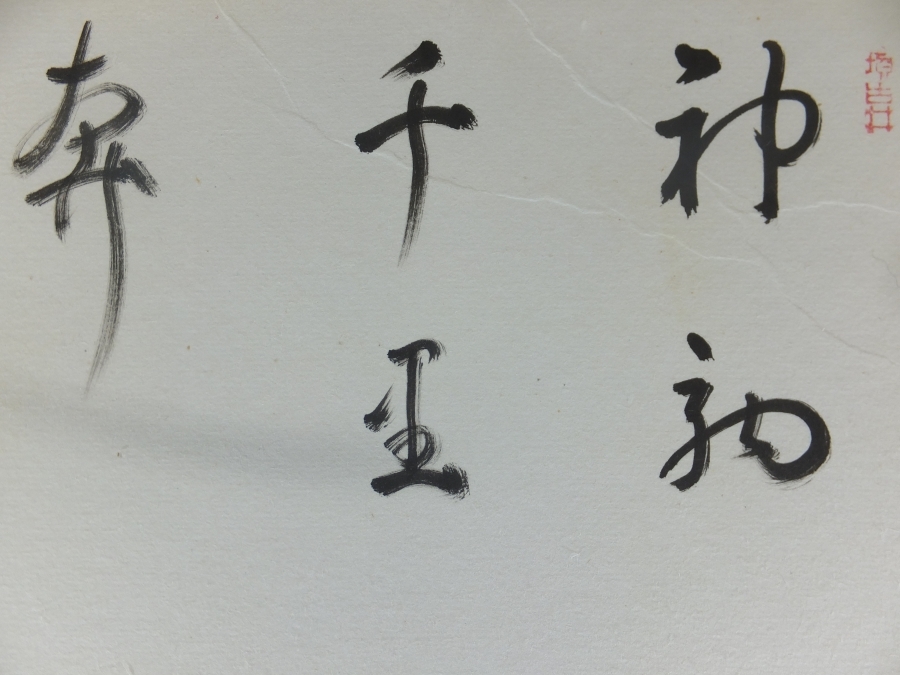 神駒
千里
奔